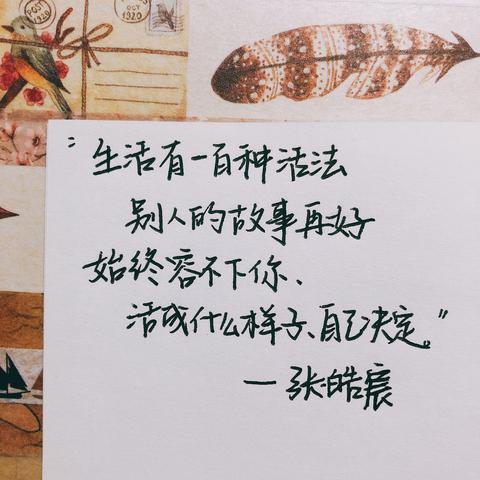 POST
1920
POST
OCT
1920
“生活有一百种活法
别人的故事再好
始终容不下你、
活成什么样子、自己决定。”
—张皓宸